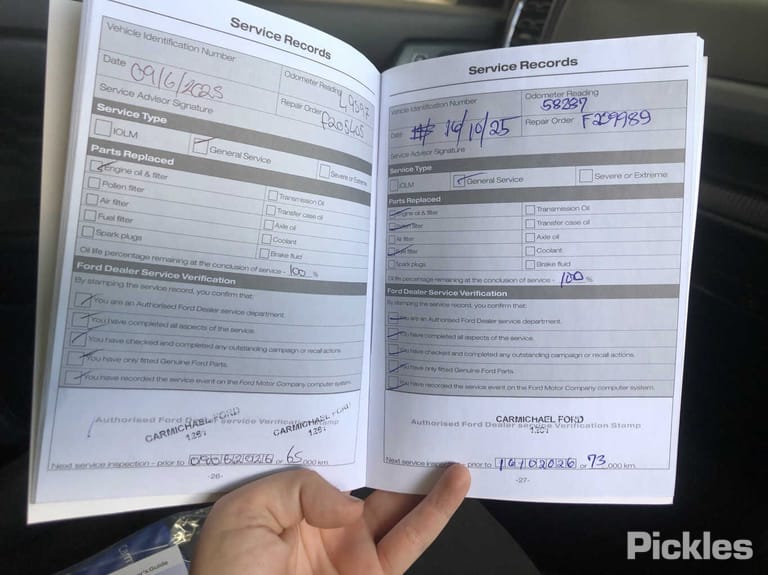 Service Records
Vehicle Identification Number
Odometer Reading
Date 09/6/2025
49597
Repair Order
F205405
Service Advisor Signature
Service Type
IOLM
General Service
Severe or Extreme
Parts Replaced
Engine oil & filter
Pollen filter
Air filter
Fuel filter
Spark plugs
Transmission Oil
Transfer case oil
Axle oil
Coolant
Brake fluid
Oil life percentage remaining at the conclusion of service - 100 %
Ford Dealer Service Verification
By stamping the service record, you confirm that:
You are an Authorised Ford Dealer service department.
You have completed all aspects of the service.
You have checked and completed any outstanding campaign or recall actions.
You have only fitted Genuine Ford Parts.
You have recorded the service event on the Ford Motor Company computer system.
Authorised Ford Dealer service Verification Stamp
CARMICHAEL FORD
CARMICHAEL FORD
Next service inspection – prior to 09062026 or 65 ,000 km.
-26-
Service Records
Vehicle Identification Number
Odometer Reading
58237
Date 16/10/25
Repair Order F209989
Service Advisor Signature
Service Type
IOLM
General Service
Severe or Extreme
Parts Replaced
Engine oil & filter
Pollen filter
Air filter
Fuel filter
Spark plugs
Transmission Oil
Transfer case oil
Axle oil
Coolant
Brake fluid
Oil life percentage remaining at the conclusion of service - 100 %
Ford Dealer Service Verification
By stamping the service record, you confirm that:
You are an Authorised Ford Dealer service department.
You have completed all aspects of the service.
You have checked and completed any outstanding campaign or recall actions.
You have only fitted Genuine Ford Parts.
You have recorded the service event on the Ford Motor Company computer system.
CARMICHAEL FORD
Authorised Ford Dealer service Verification Stamp
Next service inspection – prior to 16102026 or 73 ,000 km.
-27-
Pickles